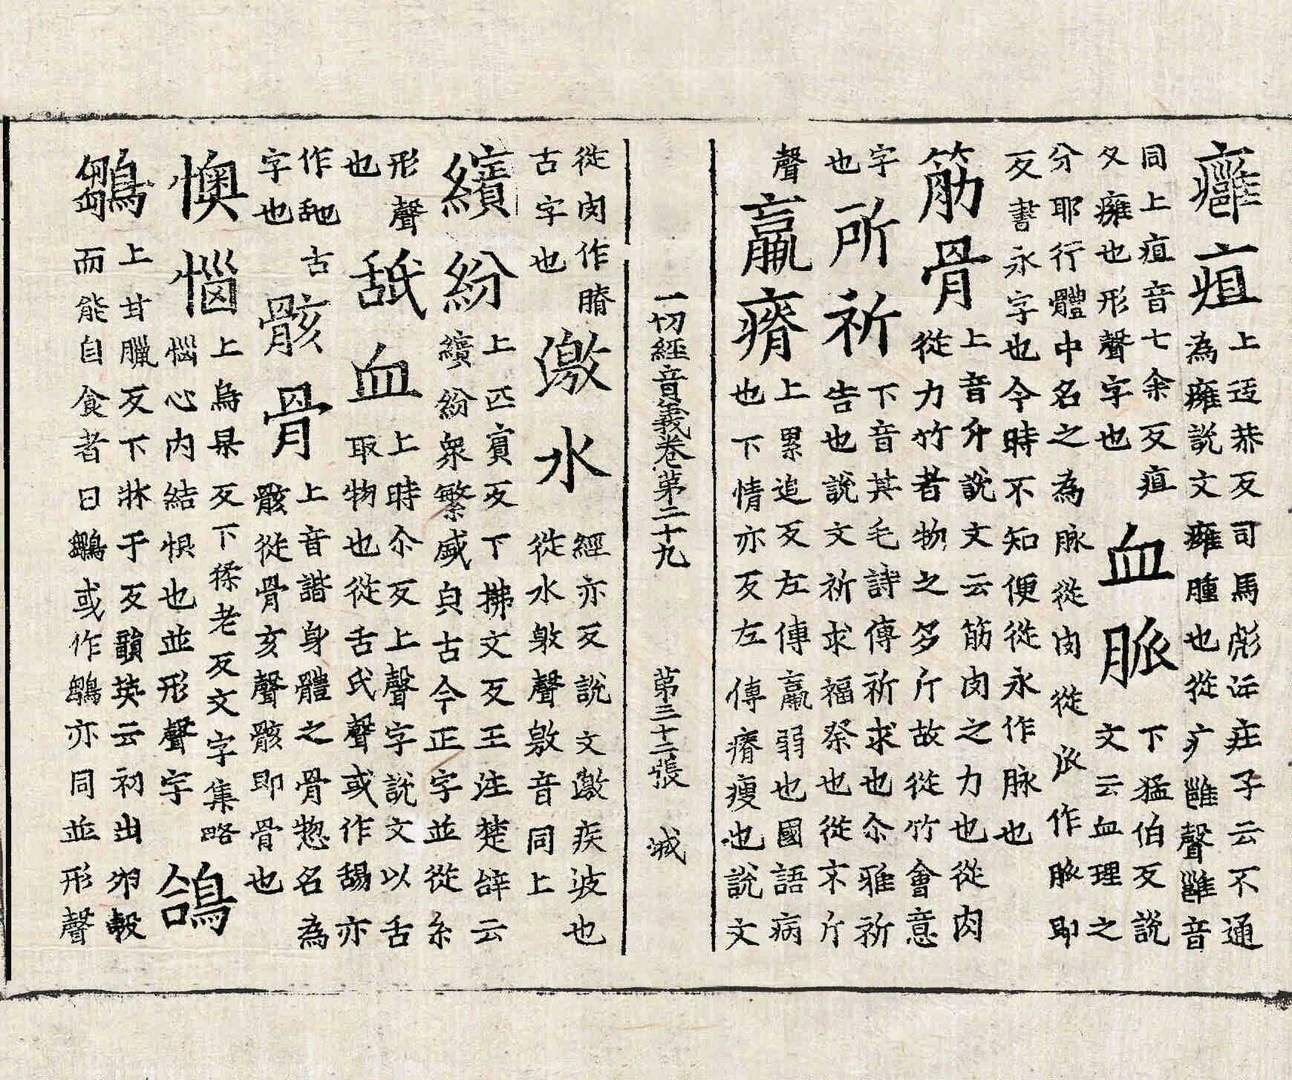 癰疽上迃恭反司馬彪注莊子云不通
為癰說文癰腫也從疒雝聲雝音
同上疽音七余反疽
久癰也形聲字也
血脈下猛伯反說
文云血理之
分耶行體中名之為脈從肉從𠂢作脈即
反書永字也今時不知便從永作脉也
筋骨上音斤說文云筋肉之力也從肉
從力竹者物之多斤故從竹會意
字
也
所祈下音其毛詩傳祈求也尒雅祈
告也說文祈求福祭也從示斤
聲
羸瘠上累追反左傳羸弱也國語病
也下情亦反左傳瘠瘦也說文
一切經音義卷第二十九 第三十二張 諴
從肉作膌
古字也
激水經亦反說文激疾波也
從水敫聲敫音同上
繽紛上匹賓反下拂文反王注楚辭云
繽紛衆繁盛皃古今正字並從糸
形聲
也
舐血上時尒反上聲字說文以舌
取物也從舌氏聲或作舓亦
作𦧇古
字也
骸骨上音諧身體之骨惣名為
骸從骨亥聲骸即骨也
懊惱上烏杲反下猱老反文字集略
惱心內結恨也並形聲字
鴿
鶵上甘臘反下牀于反韻英云初出卵鷇
而能自食者曰鶵或作鶵亦同並形聲